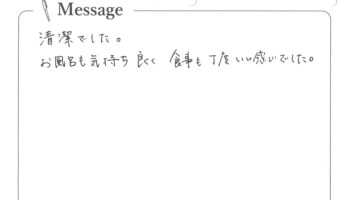 Message
清潔でした。
お風呂も気持ち良く 食事も丁度いい感じでした。